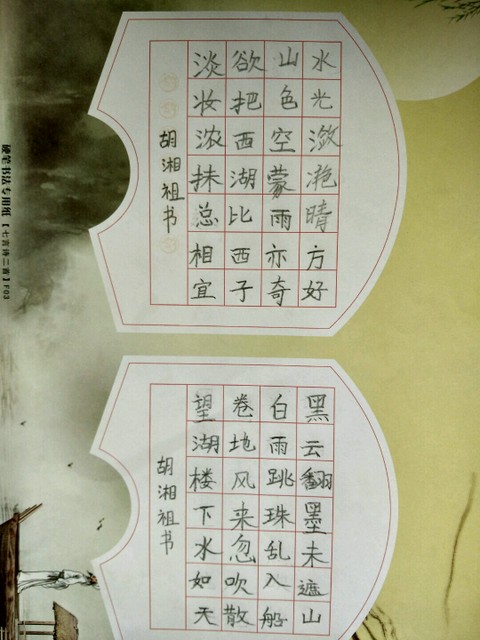 水光潋滟晴方好
山色空蒙雨亦奇
欲把西湖比西子
淡妆浓抹总相宜
胡湘祖书
黑云翻墨未遮山
白雨跳珠乱入船
卷地风来忽吹散
望湖楼下水如天
胡湘祖书
硬笔书法专用纸【七言诗二首】F03